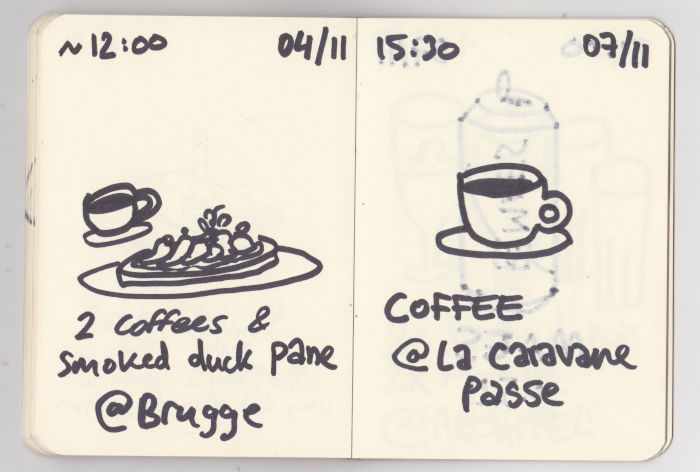 ~12:00 04/11
2 coffees &
smoked duck pane
@Brugge
15:30 07/11
COFFEE
@La caravane
Passe